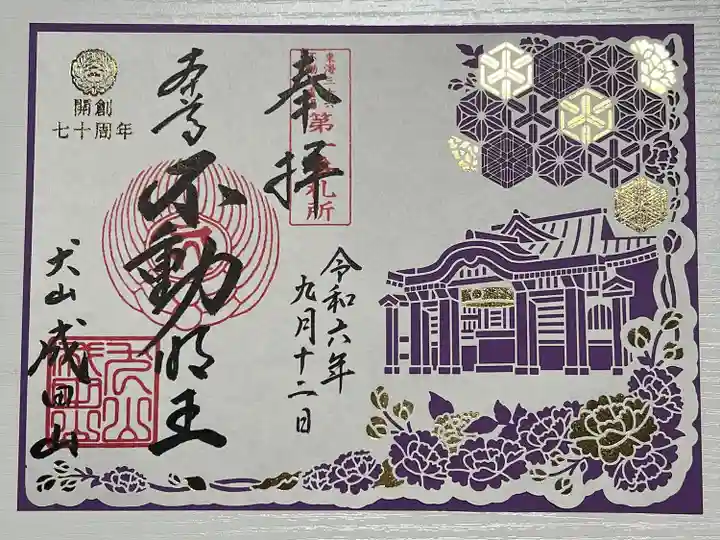 奉拝
令和六年
九月十二日
本尊
不動明王
犬山成田山
開創
七十周年